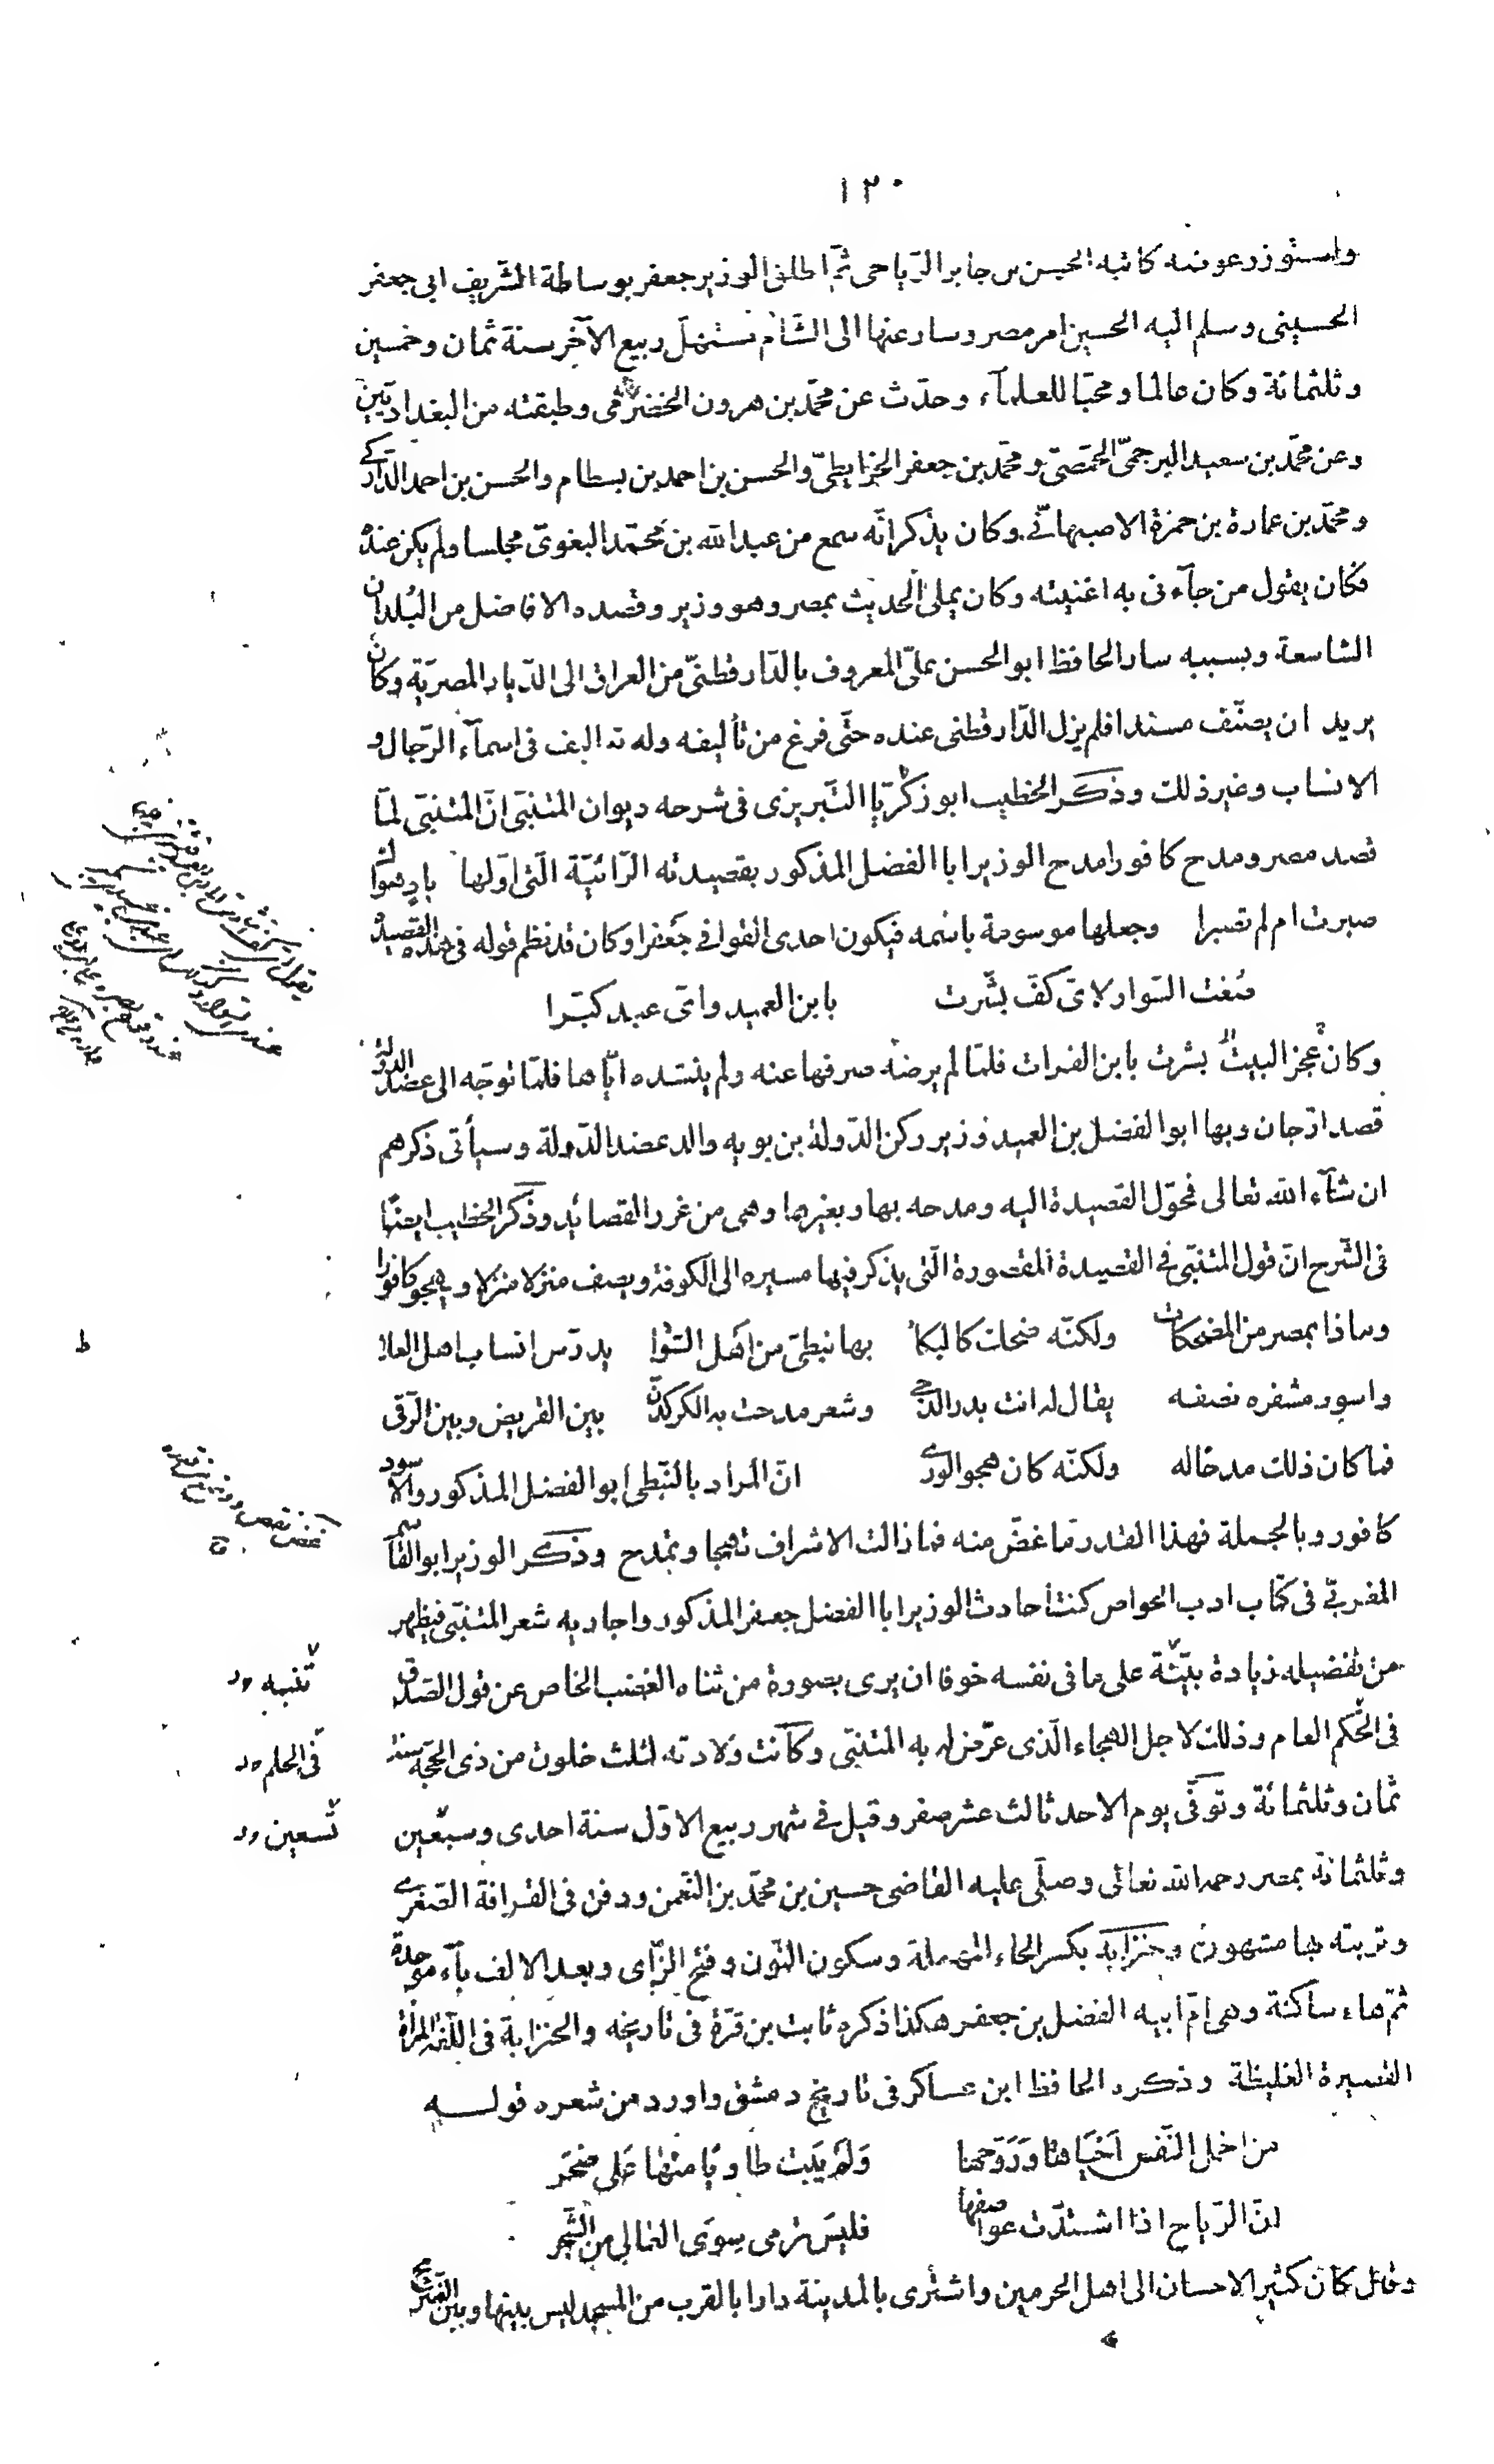 ١٢٠
واستوزر عوضه كاتبه الحسن بن جابر الرّياحى ثمّ اطلق الوزير جعفر بوساطة الشّريف ابى جعفر
الحسينى وسلم اليه الحسين امر مصر وسار عنها الى الشّام مستهلّ ربيع الآخر سنة ثمان وخمسين
وثلثمائة وكان عالما ومحبّا للعلمآء وحدّث عن محمّد بن هرون الحضرمى وطبقته من البغداديّين
وعن محمّد بن سعيد البرجمىّ الحمصىّ ومحمّد بن جعفر الخرايطىّ والحسن بن احمد بن بسطام والحسن بن احمد الدّاركى
ومحمّد بن عمارة بن حمزة الاصبهانىّ وكان يذكر انّه سمع من عبد الله بن محمّد البغوىّ مجلسا ولم يكن عنده
فكان يقول من جآءنى به اغنيته وكان يملى الحديث بمصر وهو وزير وقصده الافاضل من البُلدان
الشاسعة وبسببه سار الحافظ ابو الحسن علىّ المعروف بالدّارقطنىّ من العراق الى الدّيار المصريّة وكان
يريد ان يصنّف مسندا فلم يزل الدّارقطنى عنده حتّى فرغ من تأليفه وله تواليف فى اسمآء الرّجال و
الانساب وغير ذلك وذكر الخطيب ابو زكريّا التّبريزى فى شرحه ديوان المتنبّى انّ المتنبّى لمّا
قصد مصر ومدح كافورا مدح الوزير ابا الفضل المذكور بقصيدته الرّائيّة الّتى اوّلها بادٍ هواك
صبرت ام لم تصبرا وجعلها موسومة باسمه فيكون احدى القوافى جَعفرا وكان قد نظم قوله فى هذه القصيدة
صُغت السّوار لاىّ كفّ بشّرت بابن العميد واىّ عبد كبّرا
وكان عجز البيت بشرت بابن الفرات فلمّا لم يرضه صرفها عنه ولم ينشده ايّاها فلمّا توجّه الى عضد الدولة
قصد ارّجان وبها ابو الفضل بن العميد وزير ركن الدّولة بن بويه والد عضد الدّولة وسيأتى ذكرهم
ان شآء الله تعالى فحوّل القصيدة اليه ومدحه بها وبغيرها وهى من غرر القصائد وذكر الخطيب ايضًا
فى الشّرح انّ قول المتنبّى فى القصيدة المقصورة الّتى يذكر فيها مسيره الى الكوفة ويصف منزلا منزلا ويهجو كافورا
وماذا بمصر من المضحكات ولكنّه ضحك كالبكا بها نبطىّ من اهل السّوا يدرّس انساب اهل العلا
واسود مشفره نصفه يقال له انت بدر الدّجى وشعر مدحت به الكركدّن بين القريض وبين الرّقى
فما كان ذلك مدحًا له ولكنّه كان هجو الورى انّ المراد بالنّبطى ابو الفضل المذكور والاسود
كافور وبالجملة فهذا القدر ما غضّ منه فما زالت الاشراف تهجا وتمدح وذكر الوزير ابو القاسم
المغربىّ فى كتاب ادب الخواص كنت احادث الوزير ابا الفضل جعفر المذكور واجاريه شعر المتنبّى فيظهر
من تفضيله زيادة بيّنة على ما فى نفسه خوفا ان يرى بصورة من ثناه الغضب الخاص عن قول الصّدق
فى الحُكم العام وذلك لاجل الهجاء الّذى عرّض له به المتنبّى وكانت ولادته لثلث خلون من ذى الحجّة سنة
ثمان وثلثمائة وتوفّى يوم الاحد ثالث عشر صفر وقيل فى شهر ربيع الاوّل سنة احدى وسبعين
وثلثمائة بمصر رحمه الله تعالى وصلّى عليه القاضى حسين بن محمّد بن النّعمن ودفن فى القرافة الصّغرى
وتربته بها مشهورة وحنزابه بكسر الحاء المهملة وسكون النّون وفتح الزّاى وبعد الالف بآء موحدة
ثمّ هاء ساكنة وهى امّ ابيه الفضل بن جعفر هكذا ذكره ثابت بن قرّة فى تاريخه والحنزابة فى اللّغة المرأة
القصيرة الغليظة وذكره الحافظ ابن عساكر فى تاريخ دمشق واورد من شعره قوله
من اخمل النّفس اَحْيَاها وَرَوّحها وَلَمْ يَبِت طاويًا منها عَلى ضجَر
انّ الرّياح اذا اشتدّت عواصفها فليسَ ترمى سِوَى العالى من الشّجر
وقال كان كثير الاحسان الى اهل الحرمين واشترى بالمدينة دارا بالقرب من المسجد ليس بينها وبين الضّريح
ط
تنبيه
فى الحلم
تسعين